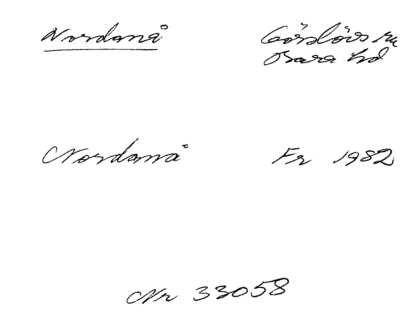 Nordanå Görslövs sn
Bara hd
Nordanå Fr 1982
Nr 33058